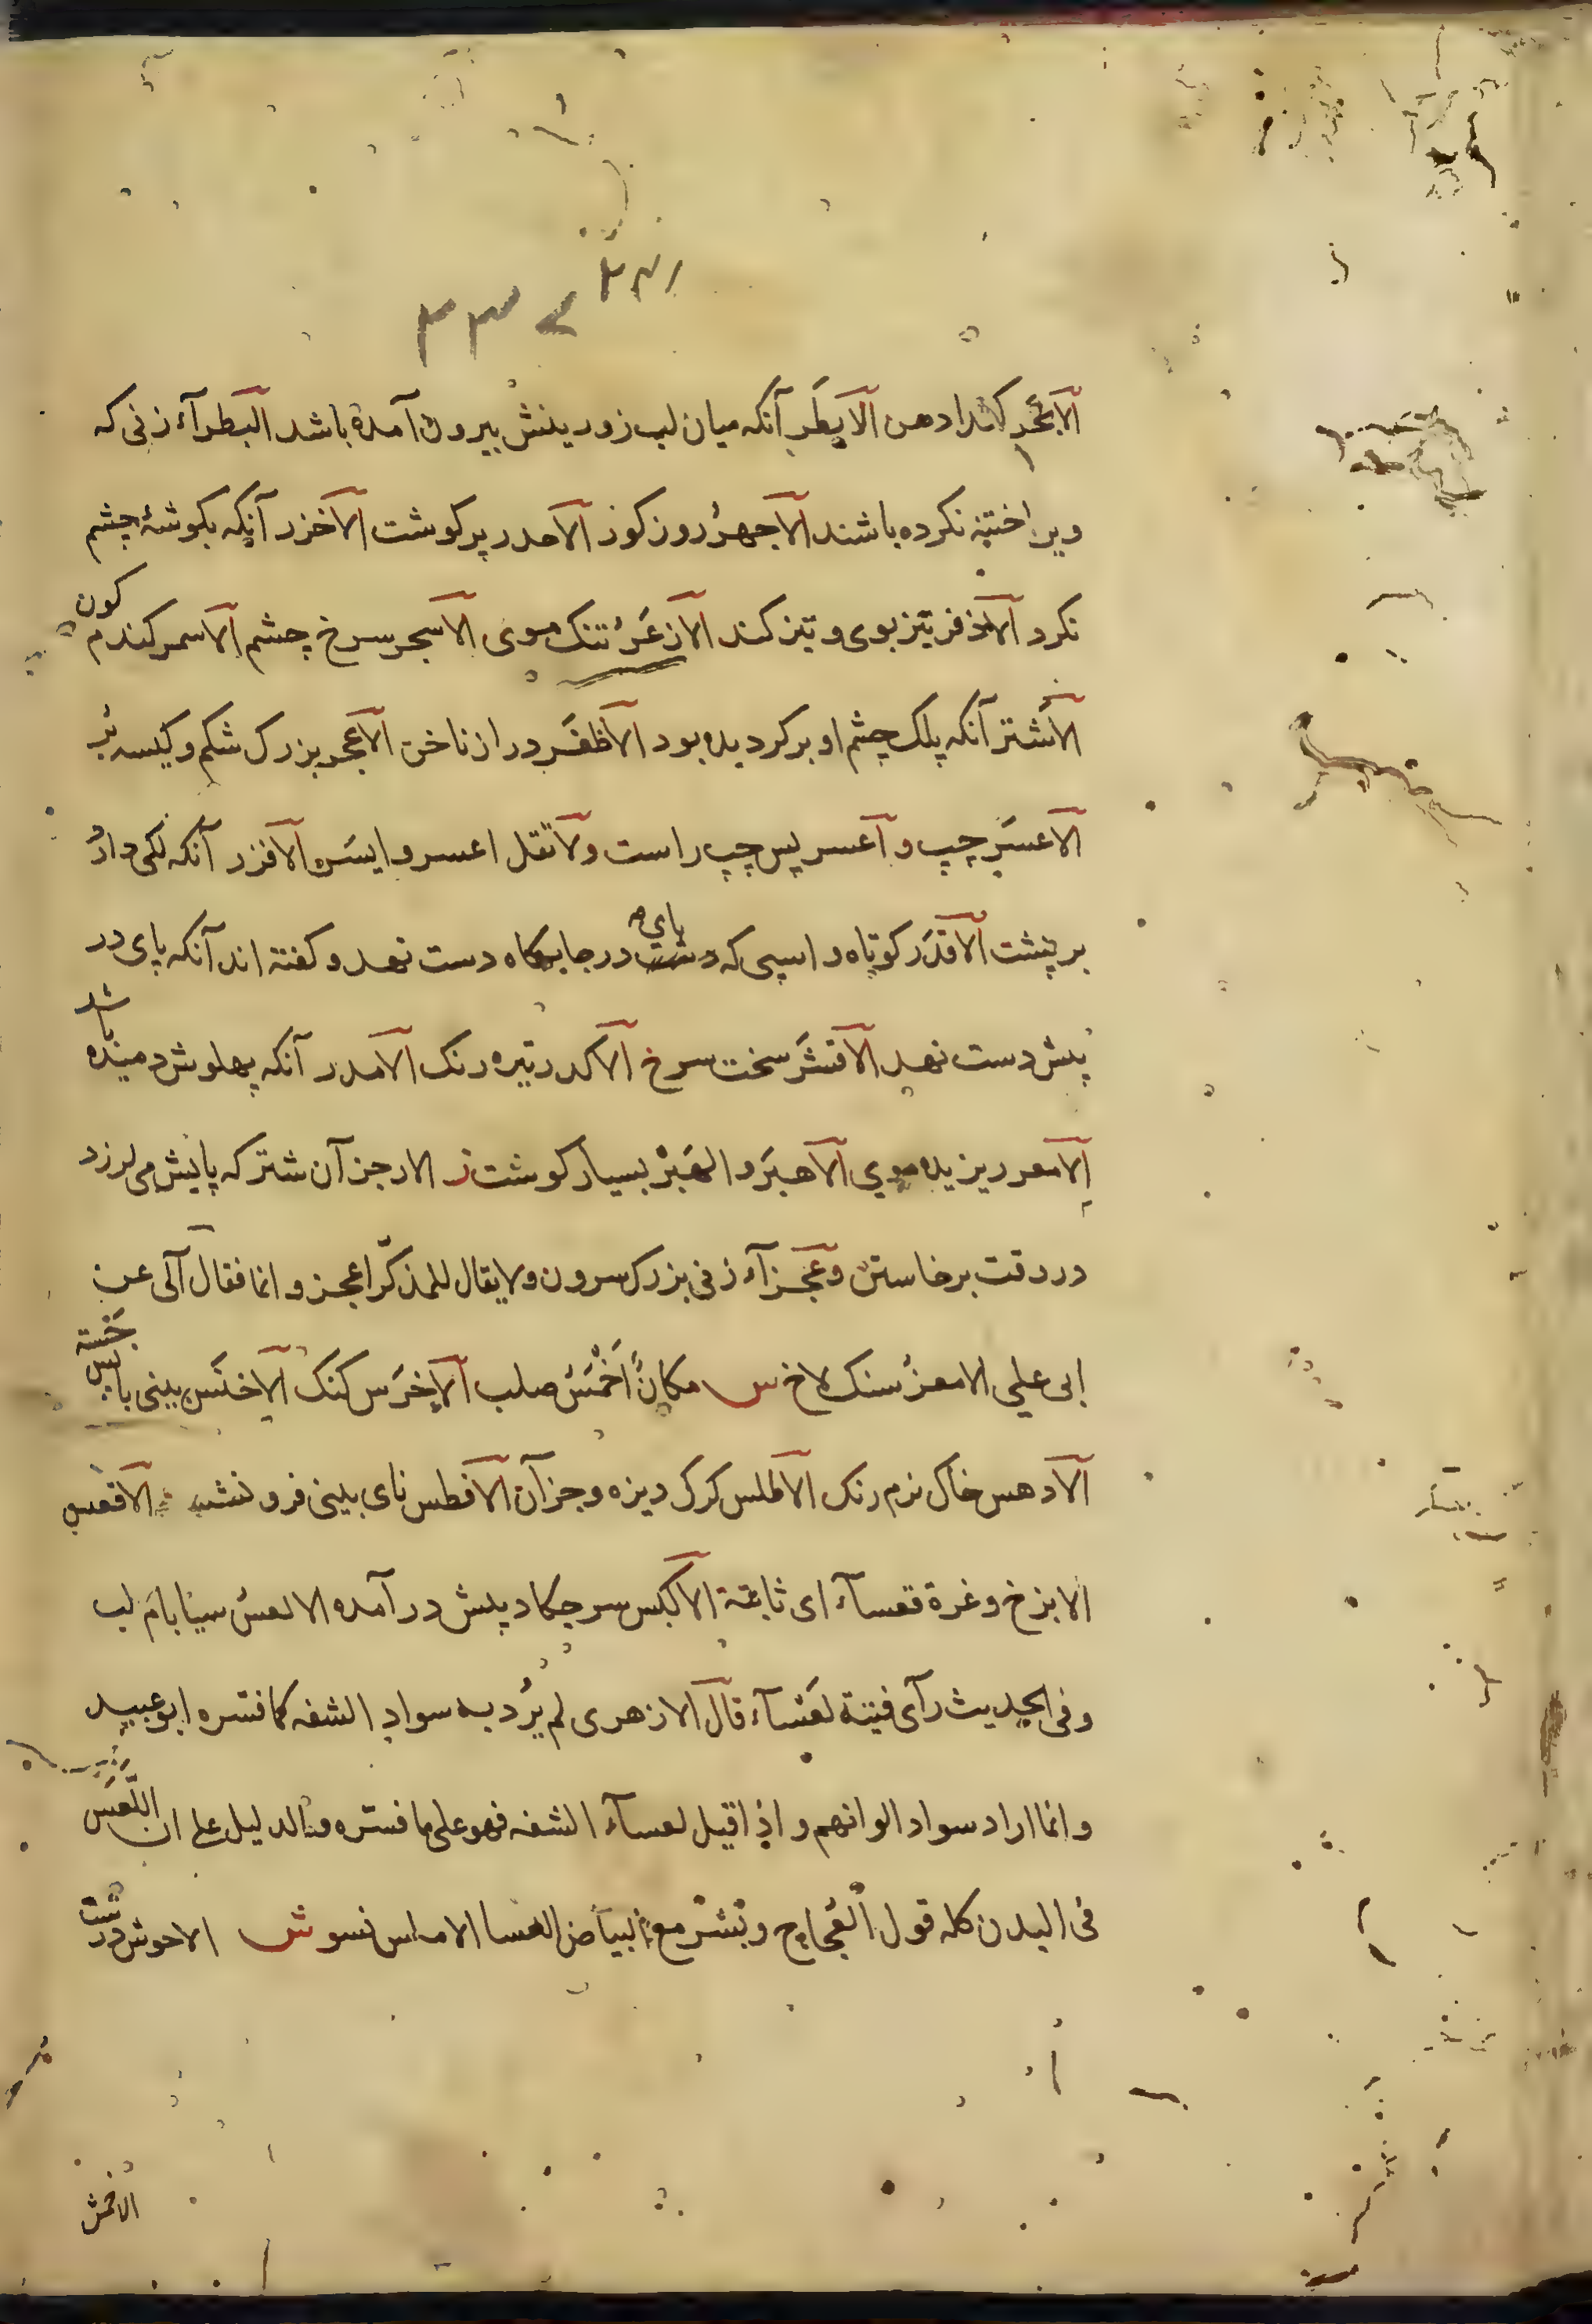 الابخر كنده دهن الابظر آنكه ميان لب زورينش بيرون آمده باشد البظرآء زنى كه
ويرا ختنه نكرده باشند الاجهر روز كور الاحدر پر كوشت الاخزر آنكه بكوشهٔ چشم
نكرد الاذفر تيز بوى و تيز كند الازعر تنك موى الاسجر سرخ چشم الاسمر كندم كون
الاشتر آنكه پلك چشم او بر كرديده بود الاظفر دراز ناخن الاعجر بزرك شكم و كيسه پر
الاعسر چپ و اعسر يسر چپ راست ولا تقل اعسر و ايسره الافزر آنكه لكى دارد
بر پشت الاقدر كوتاه و اسپى كه پاى در جايكاه دست نهد و كفته اند آنكه پاى در
پيش دست نهد الاقشر سخت سرخ الاكدر تيره رنك الامدر آنكه پهلوش دميده باشد
الامعر ريزيده موى الاهبر و الهبر بسيار كوشت ز الارجز آن شتر كه پايش مى لرزد
در وقت برخاستن و عجزآء زنى بزرك سرون ولا يقال للمذكر اعجز و انما فقال آلى عن
ابى على الامعز سنك لاخ س مكان اخمس صلب الاخرس كنك الاخنس بينى باپس جسته
الادهس خاك نرم رنك الاطلس كرك ديزه و جز آن الافطس ناى بينى فرو نشسته الاقعس
الابزخ و غرة قعسآء اى ثابتة الاكبس سر چكاد پيش در آمده الالعس سيا بام لب
و فى الحديث رآى فتية لعسآء قال الازهرى لم يرد به سواد الشفه كما فسره ابو عبيد
و انما اراد سواد الوانهم و اذا قيل لعسآء الشفه فهو على ما فسره و الدليل على ان اللعس
فى البدن كله قول العجاج و بشر مع البياض العسا الاملس نسو ش الاحوش درشت
الاخمش